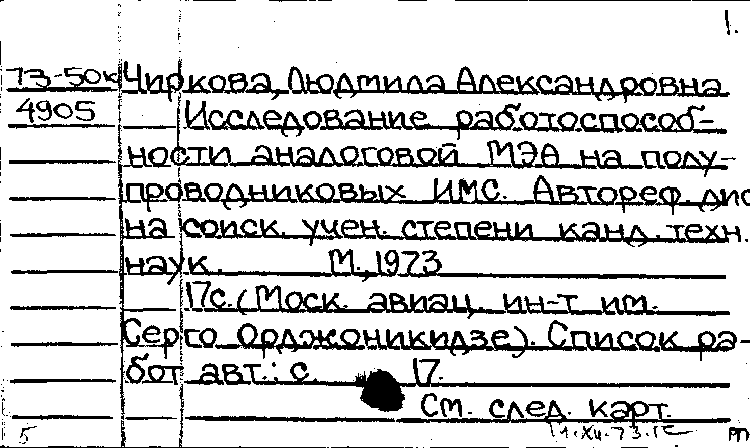 1.
73-50к Чиркова, Людмила Александровна
4905 Исследование работоспособ-
ности аналоговой МЭА на полу-
проводниковых ИМС. Автореф. дис
на соиск. учен. степени канд. техн.
наук. М., 1973
17с. (Моск. авиац. ин-т им.
Серго Орджоникидзе). Список ра-
бот авт.: с. 17.
См. след. карт.
5